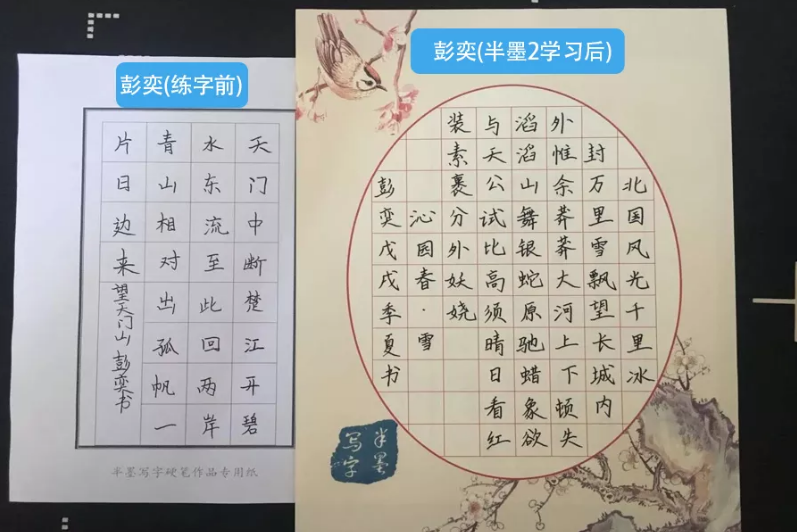 彭奕(练字前)
天门中断楚江开碧
水东流至此回两岸
青山相对出孤帆一
片日边来望天门山彭奕书
半墨写字硬笔作品专用纸
彭奕(半墨2学习后)
北国风光千里冰
封万里雪飘望长城内
外惟余莽莽大河上下顿失
滔滔山舞银蛇原驰蜡象欲
与天公试比高须晴日看红
装素裹分外妖娆
沁园春·雪
彭奕戊戌季夏书
半墨
写字